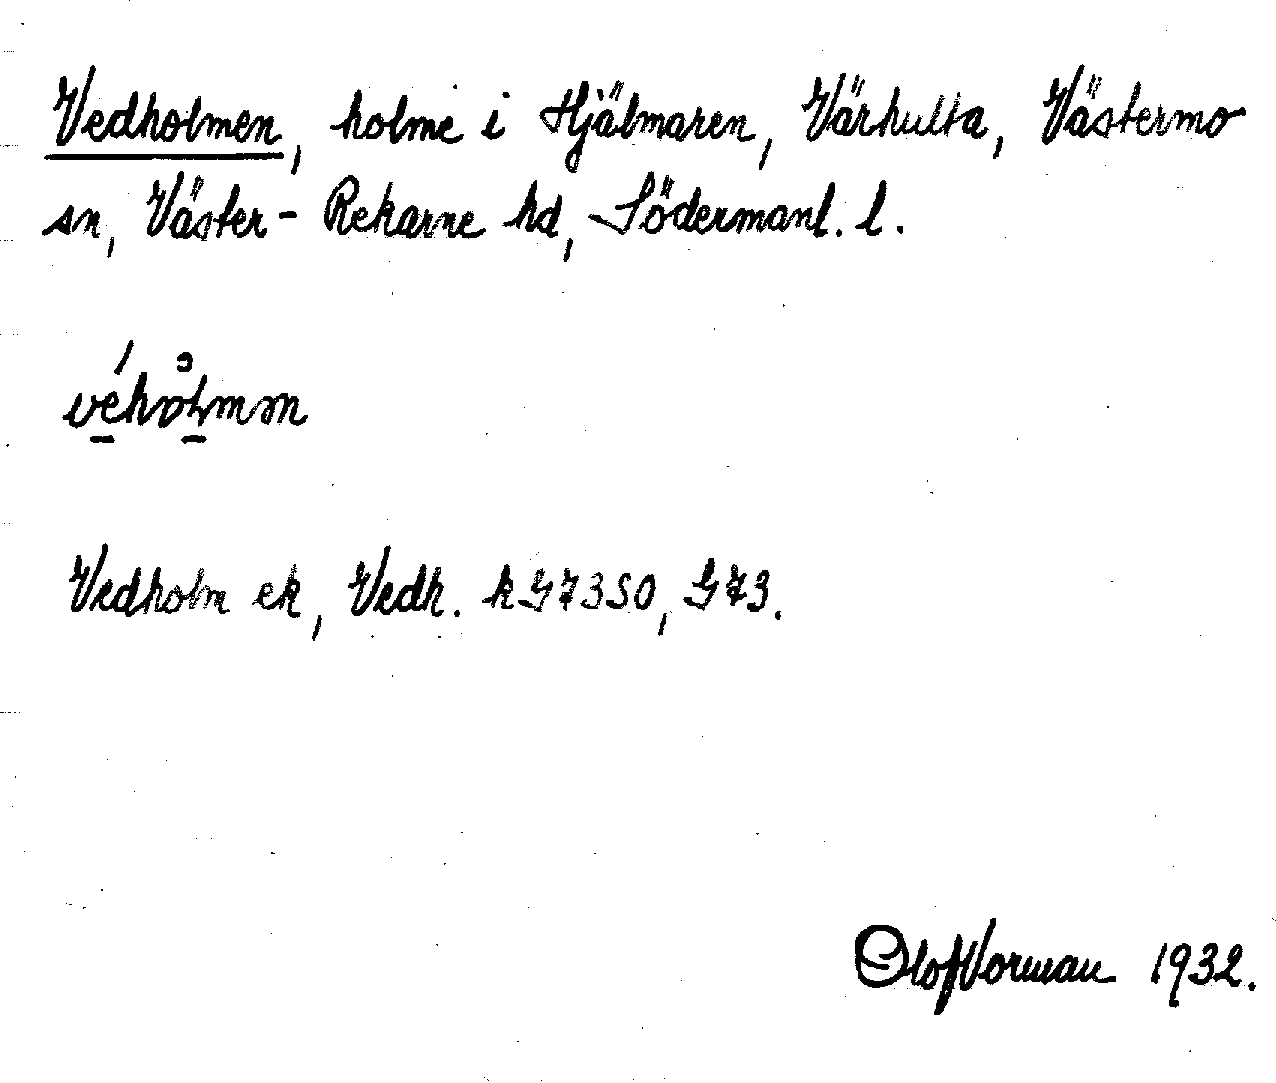 Vedholmen, holme i Hjälmaren, Värhulta, Västermo
sn, Väster-Rekarne hd, Södermanl. l.
véhålmm
Vedholm ek, Vedh. k G7350, G73.
Olof Vorman 1932.